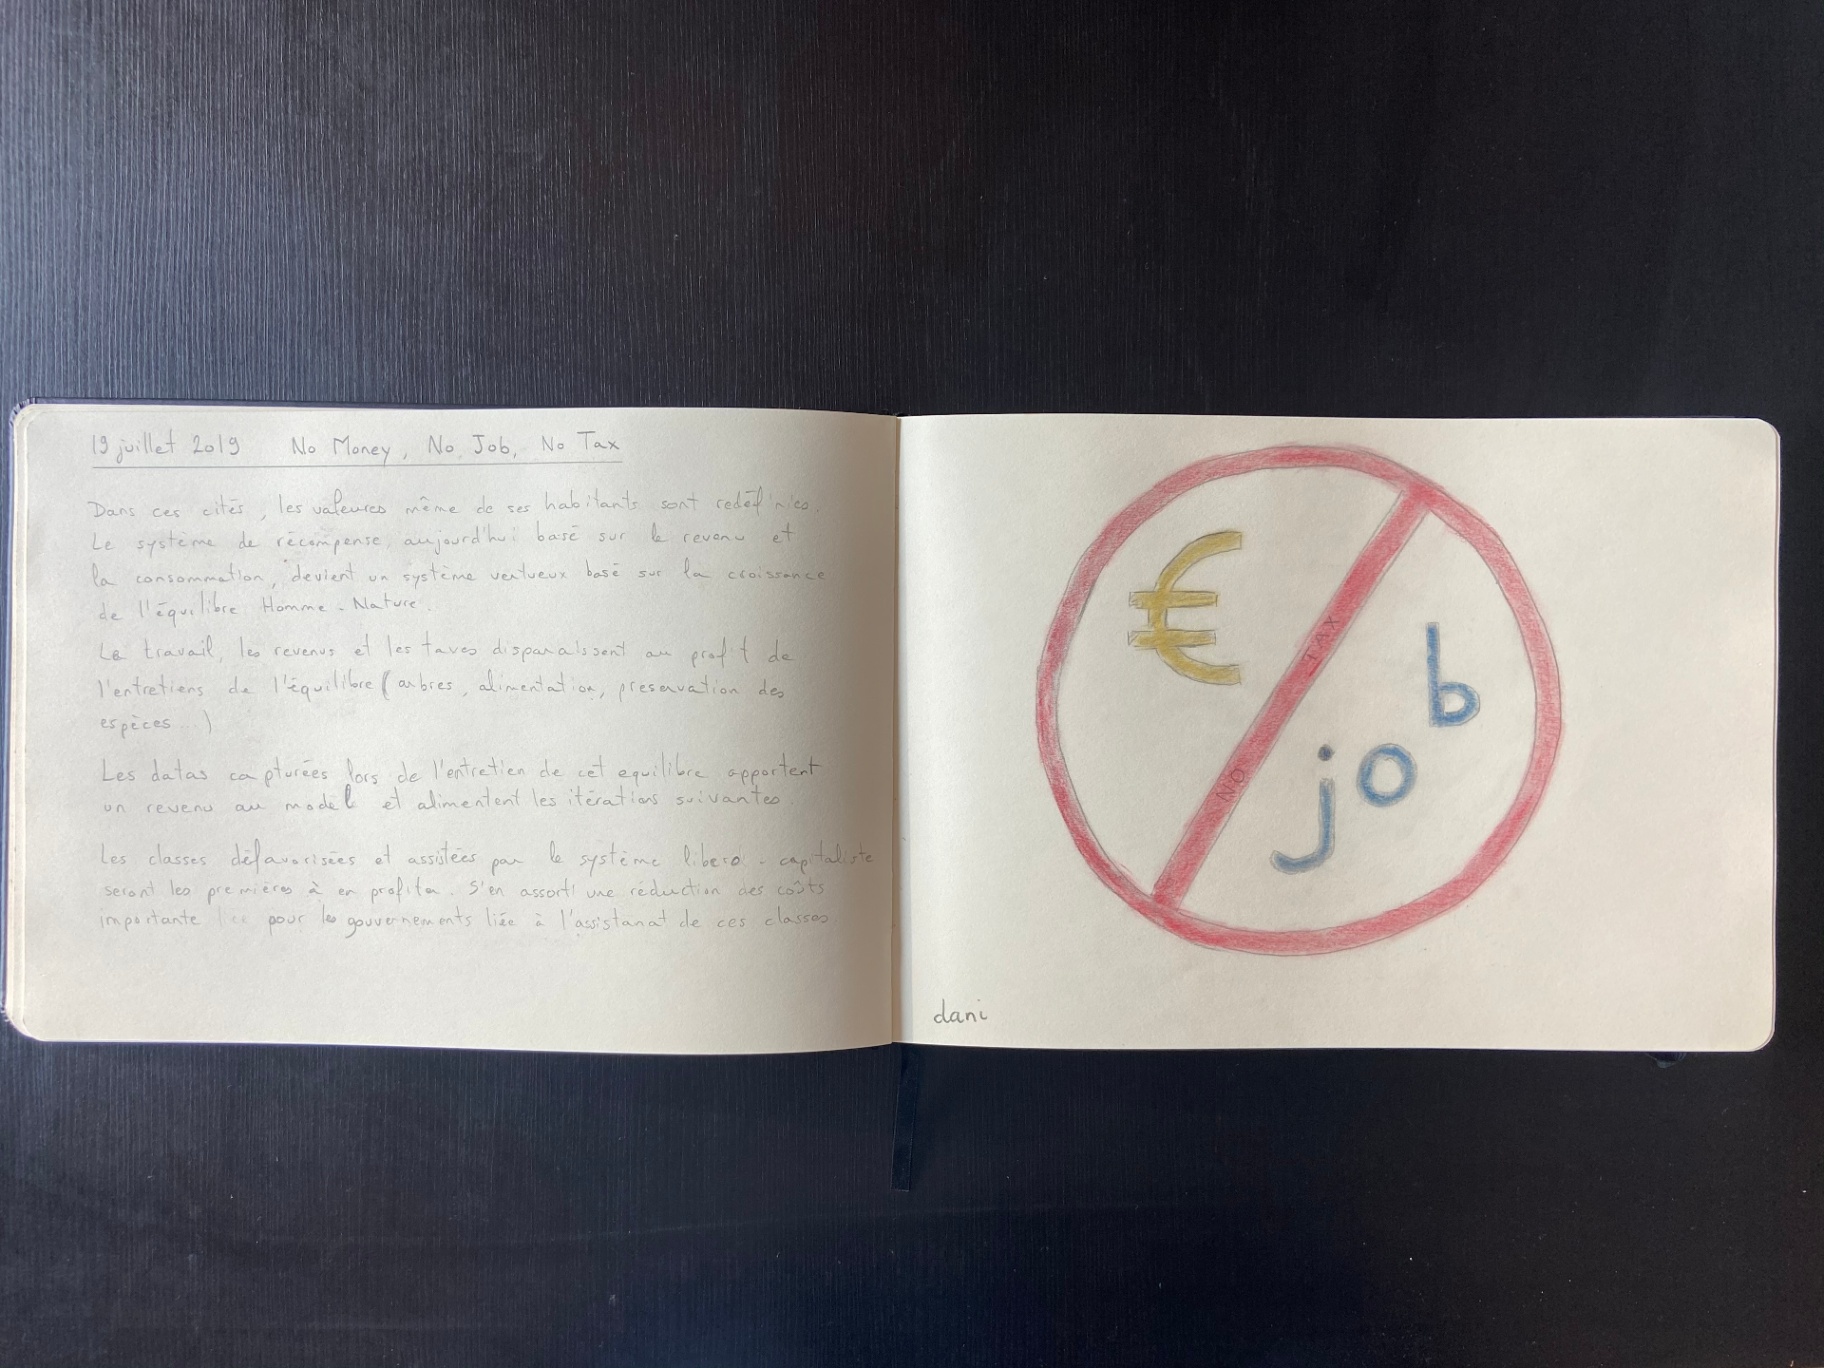 19 juillet 2019 No Money, No Job, No Tax
Dans ces cités, les valeures même de ses habitants sont redéfinies.
Le système de récompense, aujourd'hui basé sur le revenu et
la consommation, devient un système vertueux basé sur la croissance
de l'équilibre Homme - Nature.
Le travail, les revenus et les taxes disparaissent au profit de
l'entretiens de l'équilibre (arbres, alimentation, preservation des
espèces...)
Les datas capturées lors de l'entretien de cet equilibre apportent
un revenu au modèle et alimentent les itérations suivantes.
Les classes défavorisées et assistées par le système libero-capitaliste
seront les premières à en profiter. S'en assorti une réduction des coûts
importante pour les gouvernements liée à l'assistanat de ces classes
€
NO TAX
job
dani